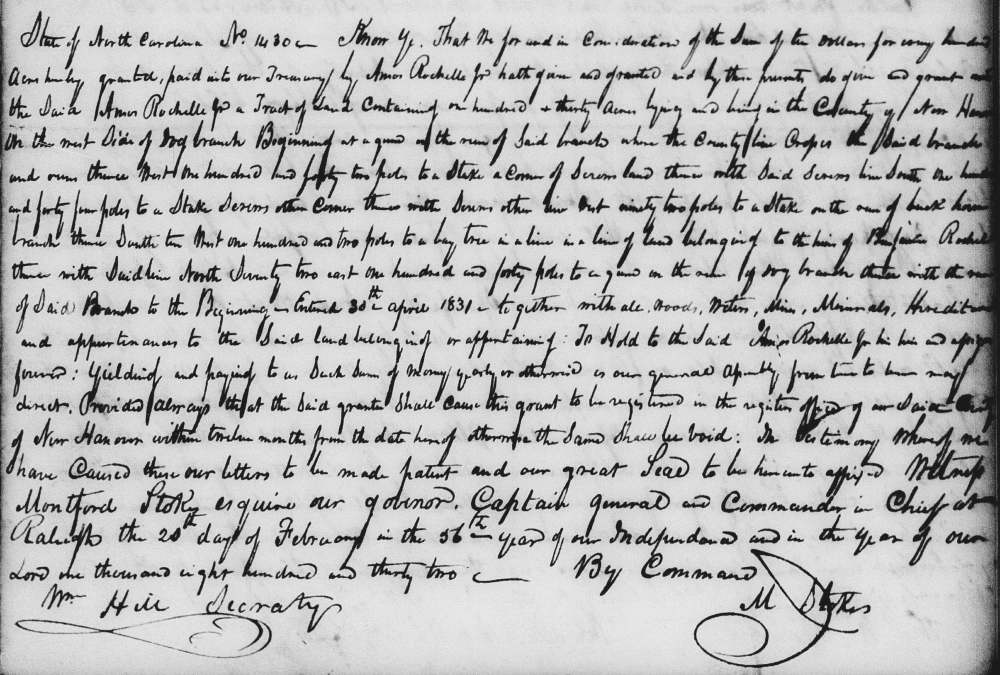 State of North Carolina No. 1430 Know Ye. That We for and in Consideration of the Sum of ten Dollars for every hundred
Acres hereby granted, paid into our Treasury by Amos Rochelle Jr hath given and granted and by these presents do give and grant unto
the Said Amos Rochelle Jr a Tract of Land Containing one hundred & thirty Acres lying and being in the County of New Hano
On the west Side of Dog branch Beginning at a gum on the run of Said branch where the County line Crosses the Said branch
and runs thence West One hundred and forty two poles to a Stake a Corner of land thence with Said line South one hund
and forty four poles to a Stake other Corner thence with other line West ninety two poles to a Stake on the run of buck horn
branch thence South ten West one hundred and two poles to a bay tree in a line in a line of land belonging to the heirs of Rochell
thence with Said line North Seventy two east one hundred and forty poles to a gum on the run of Dog branch thence with the run
of Said Branch to the Beginning Entered 30th april 1831 together with all woods, Waters, Mines, Minerals, Heredit
and appurtenances to the Said land belonging or appertaining: To Hold to the Said Amos Rochelle Jr his heirs and assigns
forever: Yielding and paying to us Such Sums of money yearly or otherwise as our general Assembly from time to time may
direct. Provided always that the Said grantee Shall Cause this grant to be registered in the register office of our Said County
of New Hanover within twelve months from the date hereof otherwise the Same Shall be Void: In Testimony Whereof we
have Caused these our letters to be made patent and our great Seal to be hereunto affixed Witness
Montford Stokes esquire our govenor, Captain general and Commander in Chief at
Raleigh the 20th day of February in the 56th year of our Independance and in the year of our
Lord one thousand eight hundred and thirty two By Command
Wm Hill Secraty M Stokes